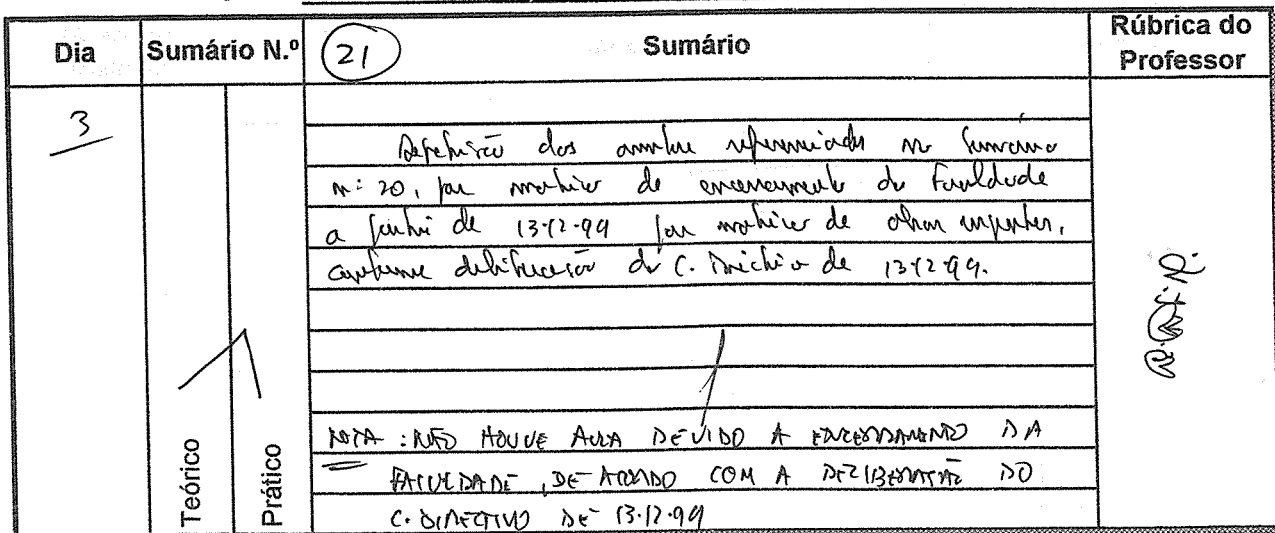 Dia Sumário N.º 21 Sumário Rúbrica do Professor
3
Repetição dos referenciados no Sumário
nº 20, por motivo de encerramento da Faculdade
a partir de 13-12-99 por motivos de obras urgentes,
conforme deliberação do C. Directivo de 13-12-99.
NOTA : NÃO HOUVE AULA DEVIDO A ENCERRAMENTO DA
FACULDADE, DE ACORDO COM A DELIBERAÇÃO DO
C. DIRECTIVO DE 13-12-99
Teórico
Prático